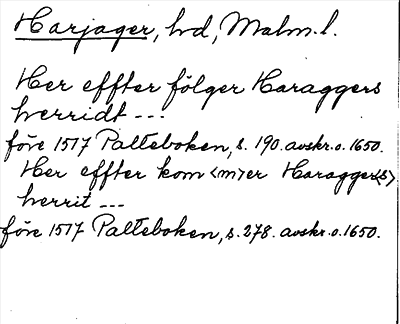 Harjager, hd, Malm. l.
Her effter fölger Haraggers
herridt ---
före 1517 Palteboken, s. 190. avskr. o. 1650.
Her effter kom<m>er Haragger<s>
herrit ---
före 1517 Palteboken, s. 278. avskr. o. 1650.